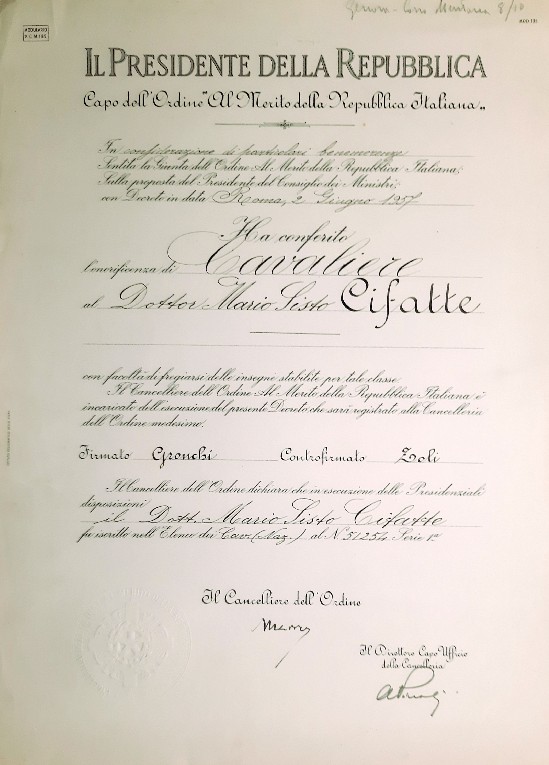 Genova - Corso Mentana 8/10
MOD 131
IL PRESIDENTE DELLA REPUBBLICA
Capo dell'Ordine "Al Merito della Repubblica Italiana"
In considerazione di particolari benemerenze
Sentita la Giunta dell'Ordine Al Merito della Repubblica Italiana;
Sulla proposta del Presidente del Consiglio dei Ministri;
con Decreto in data Roma, 2 Giugno 1957
Ha conferito
l'onorificenza di Cavaliere
al Dottor Mario Sisto Cifatte
con facoltà di fregiarsi delle insegne stabilite per tale classe.
Il Cancelliere dell'Ordine Al Merito della Repubblica Italiana è
incaricato dell'esecuzione del presente Decreto che sarà registrato alla Cancelleria
dell'Ordine medesimo.
Firmato Gronchi Controfirmato Zoli
Il Cancelliere dell'Ordine dichiara che in esecuzione delle Presidenziali
disposizioni
il Dott. Mario Sisto Cifatte
fu iscritto nell'Elenco dei Cav. (Naz.) al N° 51254 Serie 1ª
Il Cancelliere dell'Ordine
Il Direttore Capo Ufficio
della Cancelleria